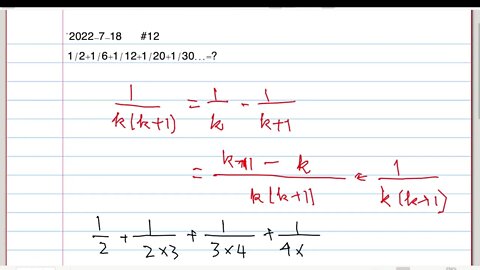 2022-7-18 #12
1/2+1/6+1/12+1/20+1/30...=?
1/k(k+1) = 1/k - 1/k+1
= k+1 - k/k(k+1) = 1/k(k+1)
1/2 + 1/2×3 + 1/3×4 + 1/4×